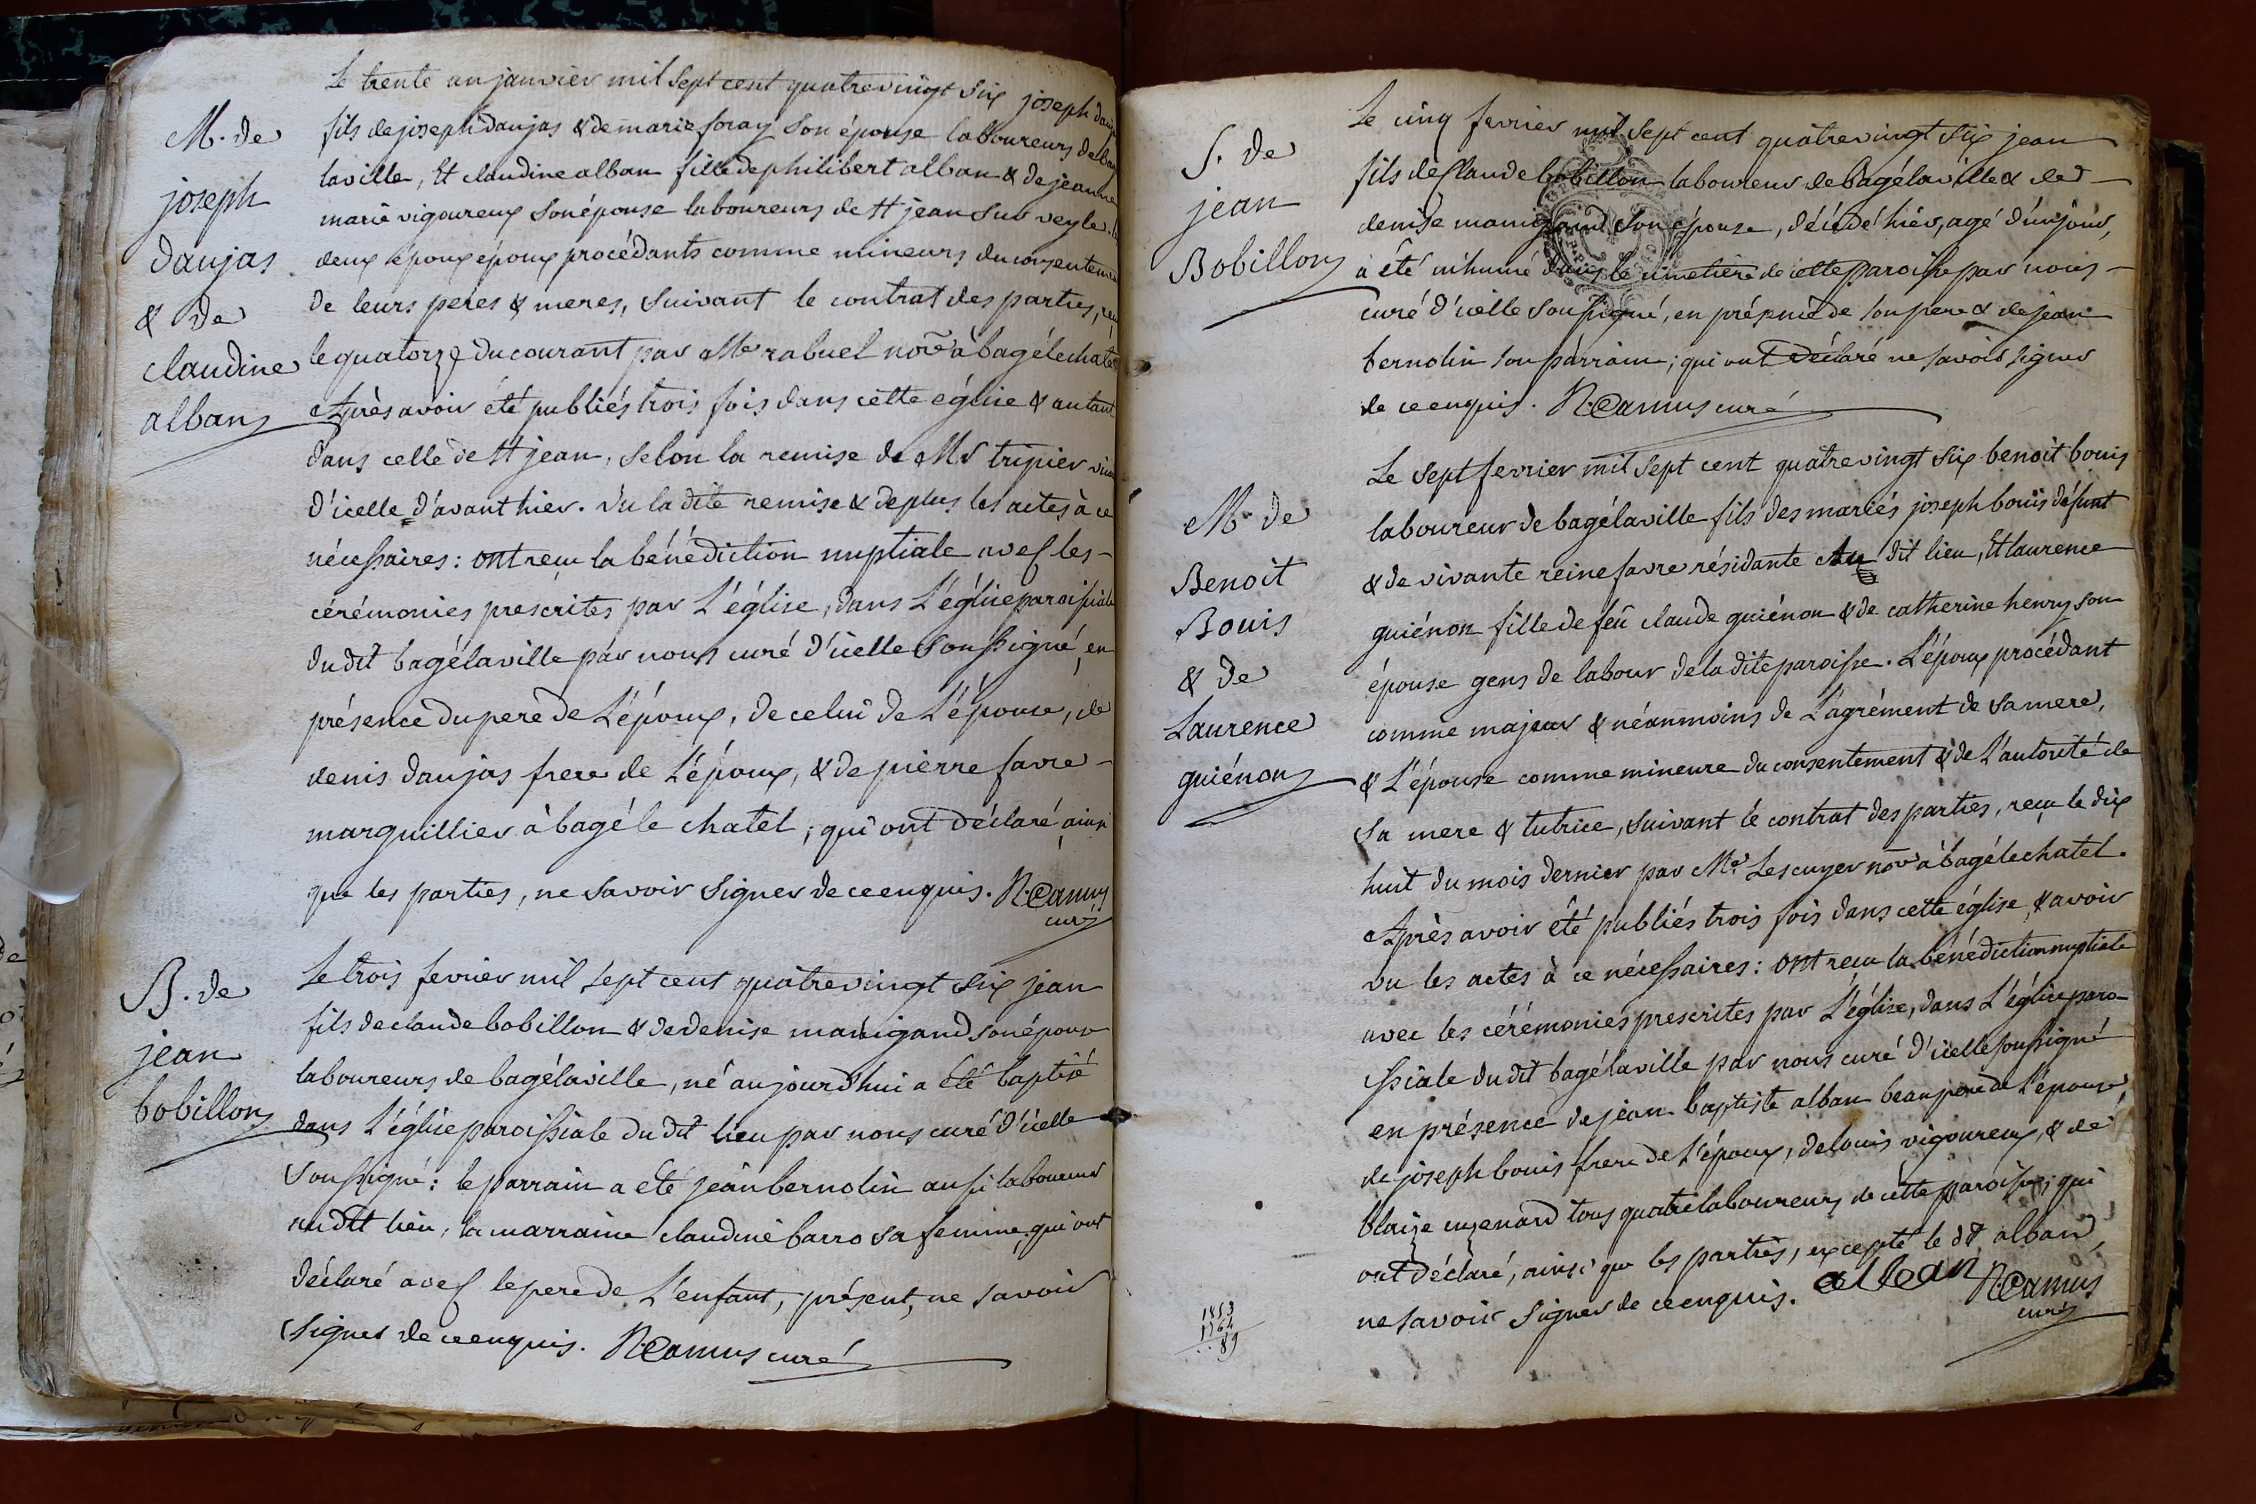 M. de
joseph
daujas
& de
claudine
alban
Le trente un janvier mil sept cent quatrevingt six joseph
fils de joseph daujas & de marie foray son épouse laboureurs de
laville, Et claudine alban fille de philibert alban & de jeanne
marie vigoureux son épouse laboureurs de st jean sur veyle.
deux époux époux procédants comme mineurs du consentement
de leurs peres & meres, suivant le contrat des parties,
le quatorze du courant par Me rabuel nore à bagélechatel
Après avoir été publiés trois fois dans cette église & autant
dans celle de st jean, selon la remise de Mr tripier
d'icelle d'avant hier. vu la dite remise & de plus les actes à ce
nécessaires: ont reçu la bénédiction nuptiale avec les
cérémonies prescrites par L'église, dans L'église paroissiale
du dit bagélaville par nous curé d'icelle soussigné, en
présence du pere de L'époux, de celui de L'épouse, de
denis daujas frere de L'époux, & de pierre favre
marguillier à bagé le chatel; qui ont déclaré ainsi
que les parties, ne savoir signer de ce enquis. N. Camus
curé
B. de
jean
bobillon
Le trois fevrier mil sept cent quatrevingt six jean
fils de claude bobillon & de denise manigand son épouse
laboureurs de bagélaville, né aujourdhui a été baptisé
dans L'église paroissiale du dit lieu par nous curé d'icelle
soussigné: le parrain a été jean bernolin aussi laboureur
au dit lieu, la marraine claudine barro sa femme, qui ont
déclaré avec le pere de L'enfant, présent, ne savoir
signer de ce enquis. N. Camus curé
S. de
jean
Bobillon
Le cinq fevrier mil sept cent quatrevingt six jean
fils de Claude bobillon laboureur de Bagélaville & de
denise manigand son épouse, décédé hier, agé d'un jour,
a été inhumé dans le cimetière de cette paroisse par nous
curé d'icelle soussigné, en présence de son pere & de jean
bernolin son parrain; qui ont déclaré ne savoir signer
de ce enquis. N. Camus curé
M. de
Benoit
Bouis
& de
Laurence
guiénon
Le sept fevrier mil sept cent quatrevingt six benoit bouis
laboureur de bagélaville fils des mariés joseph bouis défunt
& de vivante reine favre résidante Au dit lieu, Et laurence
guiénon fille de feu claude guiénon & de catherine henry son
épouse gens de labour de la dite paroisse. L'époux procédant
comme majeur & néanmoins de L'agrément de sa mere,
& L'épouse comme mineure du consentement & de L'autorité de
sa mere & tutrice, suivant le contrat des parties, reçu le dix
huit du mois dernier par Me Lescuyer nore à bagélechatel.
Après avoir été publiés trois fois dans cette église, & avoir
vu les actes à ce nécessaires: ont reçu la bénédiction nuptiale
avec les cérémonies prescrites par L'église, dans L'église paro-
issiale du dit bagélaville par nous curé d'icelle soussigné
en présence de jean baptiste alban beaupere de L'épouse,
de joseph bouis frere de L'époux, de louis vigoureux, & de
blaize cuzenard tous quatre laboureurs de cette paroisse; qui
ont déclaré, ainsi que les parties, excepté le dt alban
ne savoir signer de ce enquis. alban N. Camus
curé
1853
1764
89